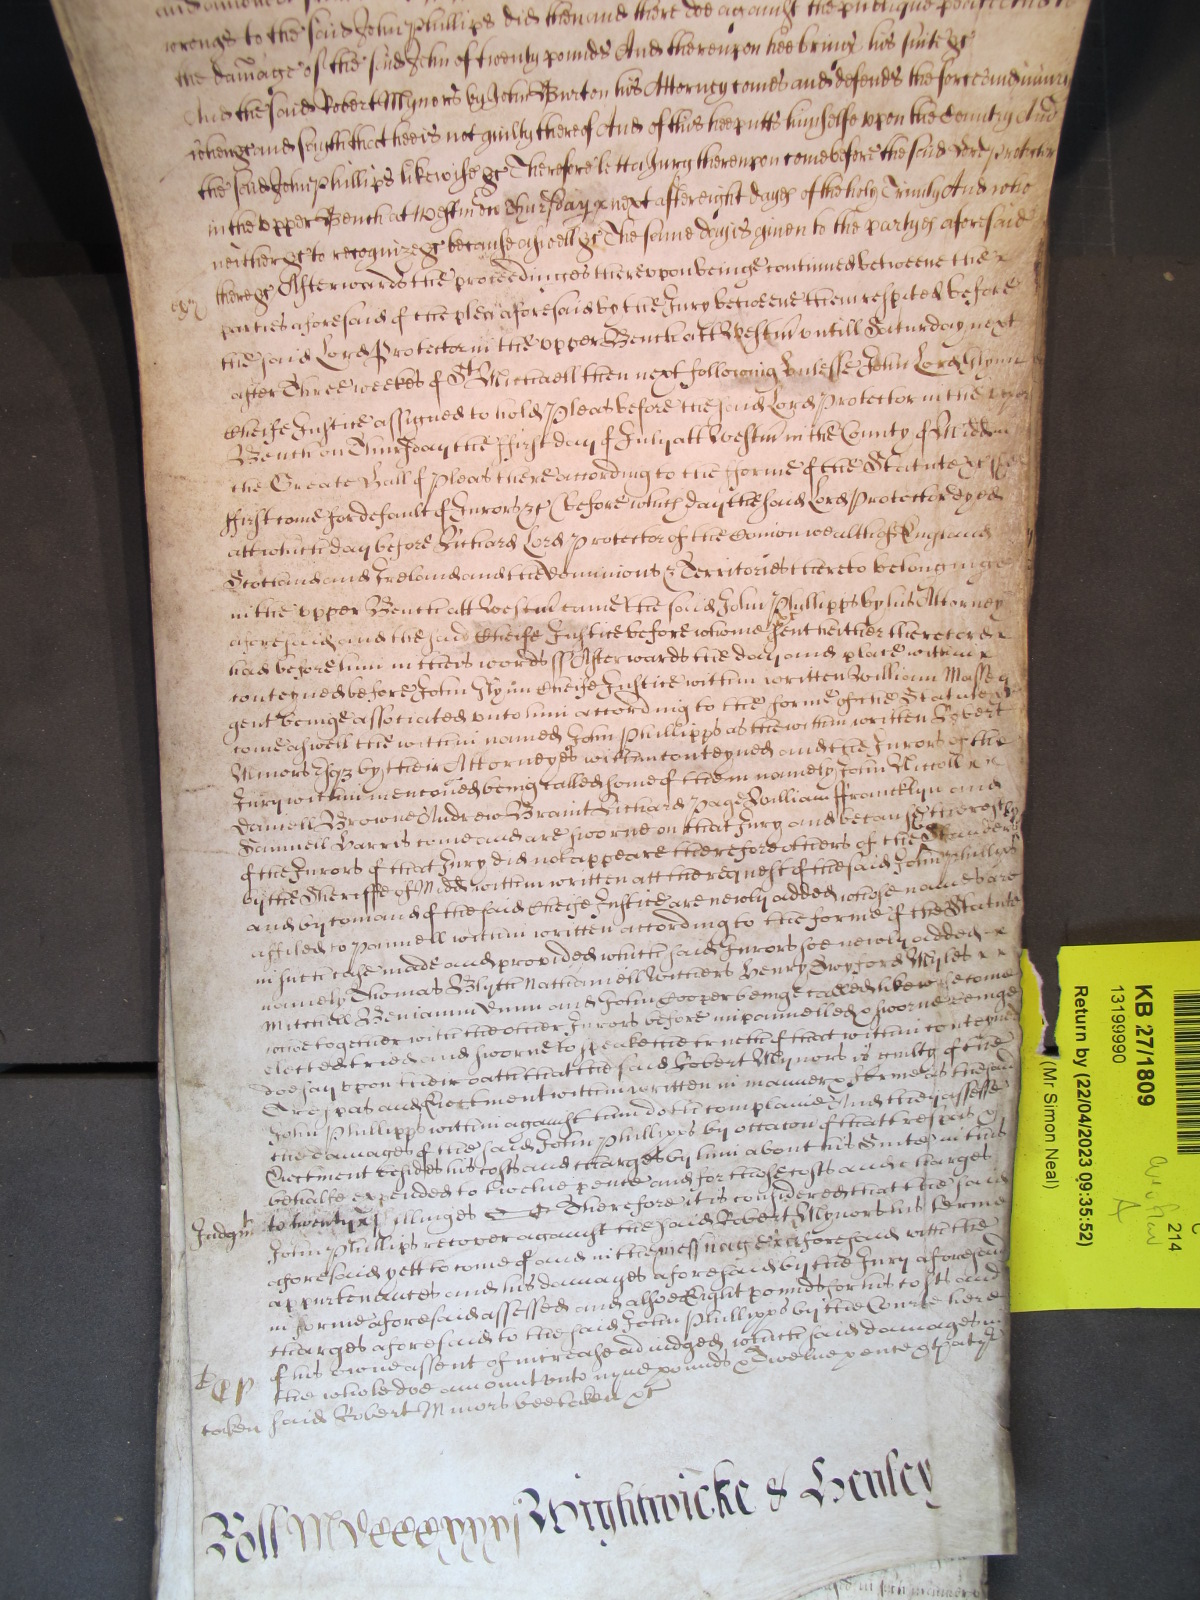 wrongs to the said John Phillips did then and there doe against the publique peace and to
the damage of the said John of twenty pounds And thereupon hee brings his suite &c
And the said Robert Mynors by John Burton his Attorney comes and defends the force and iniury
when &c and sayth that hee is not guilty thereof And of this hee putts himselfe upon the Country And
the said John Phillips likewise &c Therefore lett a Jury thereupon come before the said Lord Protector
in the upper Bench at Westmr on Thursday next after eight dayes of the holy Trinity And who
neither &c to recognize &c because aswell &c The same day is given to the partyes aforesaid
there &c Afterwards the proceedinges thereupon beinge continued betweene the
parties aforesaid of the plea aforesaid by the Jury betweene them respited before
the said Lord Protector in the upper Bench att Westm untill Saturday next
after Three weekes of St Michaell then next following unlesse John Lord Glynn
Cheife Justice assigned to hold Pleas before the said Lord Protector in the upper
Bench on Thursday the ffirst day of July att Westm in the County of Midd in
the Greate Hall of Pleas there according to the fforme of the Statute &c
ffirst come for default of Jurors &c before which day the said Lord Protector dyed
att which day before Richard Lord Protector of the Comon wealth of England
Scotland and Ireland and the dominions & Territories thereto belonginge
in the upper Bench att Westm came the said John Phillipps by his Attorney
aforesaid and the said Cheife Justice before whome &c sent hether there record
had before him in theis words ss Afterwards the day and place within
conteyned before John Glynn Cheife Justice within written William Massey
gent beinge associated unto him according to the forme of the Statute &c
come aswell the within named John Phillipps as the within written Robert
Minors Esqz by their Attorneyes within conteyned and the Jurors of the
Jury within mencioned being called some of them namely John Nicoll
Daniell Browne Andrew Braint Richard Page William ffrancklyn and
Samuell Harris come and are sworne on that Jury and because the rest
of the Jurors of that Jury did not appeare therefore others of the Standers
by the Sheriffe of Midd within written att the request of the said John Phillipps
and by comand of the said Cheife Justice are newly added whose names are
affiled to Pannell within written according to the forme of the Statute
in such case made and provided which said Jurors soe newly added
namely Thomas Blyth Nathaniell Withers Henry Myles
Mitchell Beniamin and John Cooper beinge called likewise come
whoe together with the other Jurors before impannelled & sworne beinge
elected tried and sworne to speake the trueth of that within conteyned
doe say upon their oath that the said Robert Mynors is guilty of the
Trespas and Eiectment within written in manner & forme as the said
John Phillipps within against him doth complaine And they assesse
the damages of the said John Phillipps by occasion of that trespas &
Eiectment besides his costs and charges by him about his Suite in this
behalfe expended to twelve pence and for those costs and charges
Judgmt to twenty shillinges Therefore it is considered that the said
John Phillips recover against the said Robert Mynors his terme
aforesaid yett to come of and in the messuage &c aforesaid with the
appurtenances and his damages aforesaid by the Jury aforesaid
in forme aforesaid assessed and alsoe Eight pounds for his costs and
charges aforesaid to the said John Phillipps by the Courte here
of his owne assent of increase adiudged which said damages in
the whole doe amount unto nyne pounds & Twelve pence &
taken said Robert Minors bee taken &c
Roll Wightwicke & Henley
KB 27/1809
13199990
Return by (22/04/2023 09:35:52)
(Mr Simon Neal)
214